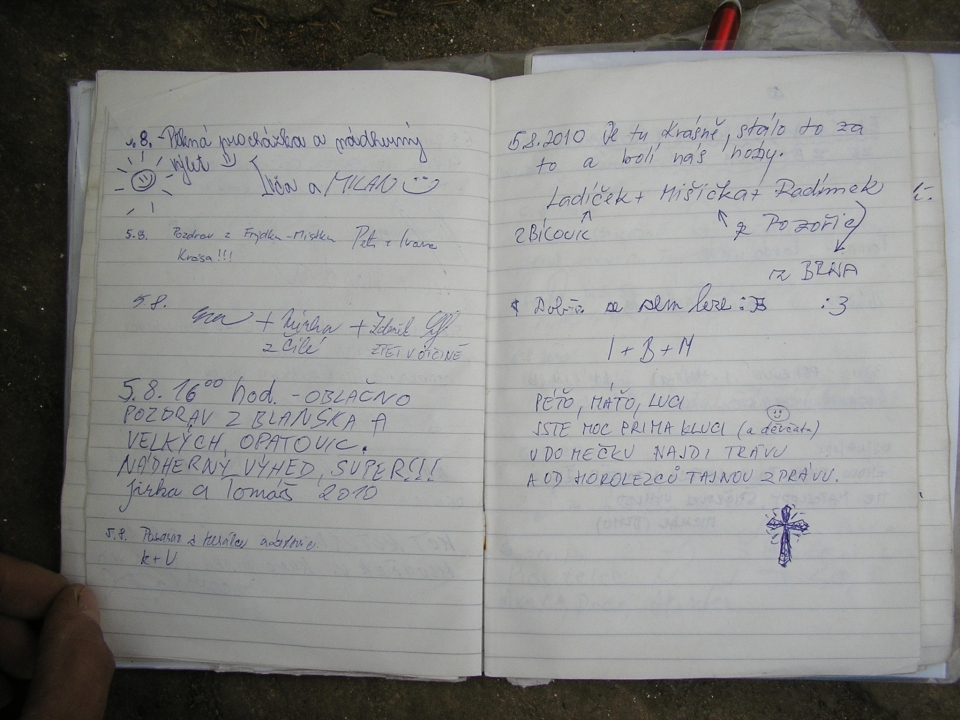 8. - Pěkná procházka a nádherný
výlet
a MILAN
5.8. Pozdrav z Frýdku-Místku Petr + Ivana
Krása!!!
5.8.
+ + Zdeněk
z Čílé
5.8. 16⁰⁰ hod. - OBLAČNO
POZDRAV Z BLANSKA A
VELKÝCH OPATOVIC.
NÁDHERNÝ VÝHED, SUPER!!!
Jirka a Tomáš 2010
5.8. Pozdrav z
K+V
5.8.2010 Je tu krásně, stálo to za
to a bolí nás nohy.
Ladíček + Mišička + Radimek
z BÍLOVIC
z Pozořic
z BRNA
Dobře se sem leze :3
I + B + M
PÉŤO, MÁŤO, LUCI
JSTE MOC PRIMA KLUCI (a děvčata)
V DOMEČKU NAJDI TRÁVU
A OD HOROLEZCŮ TAJNOU ZPRÁVU.